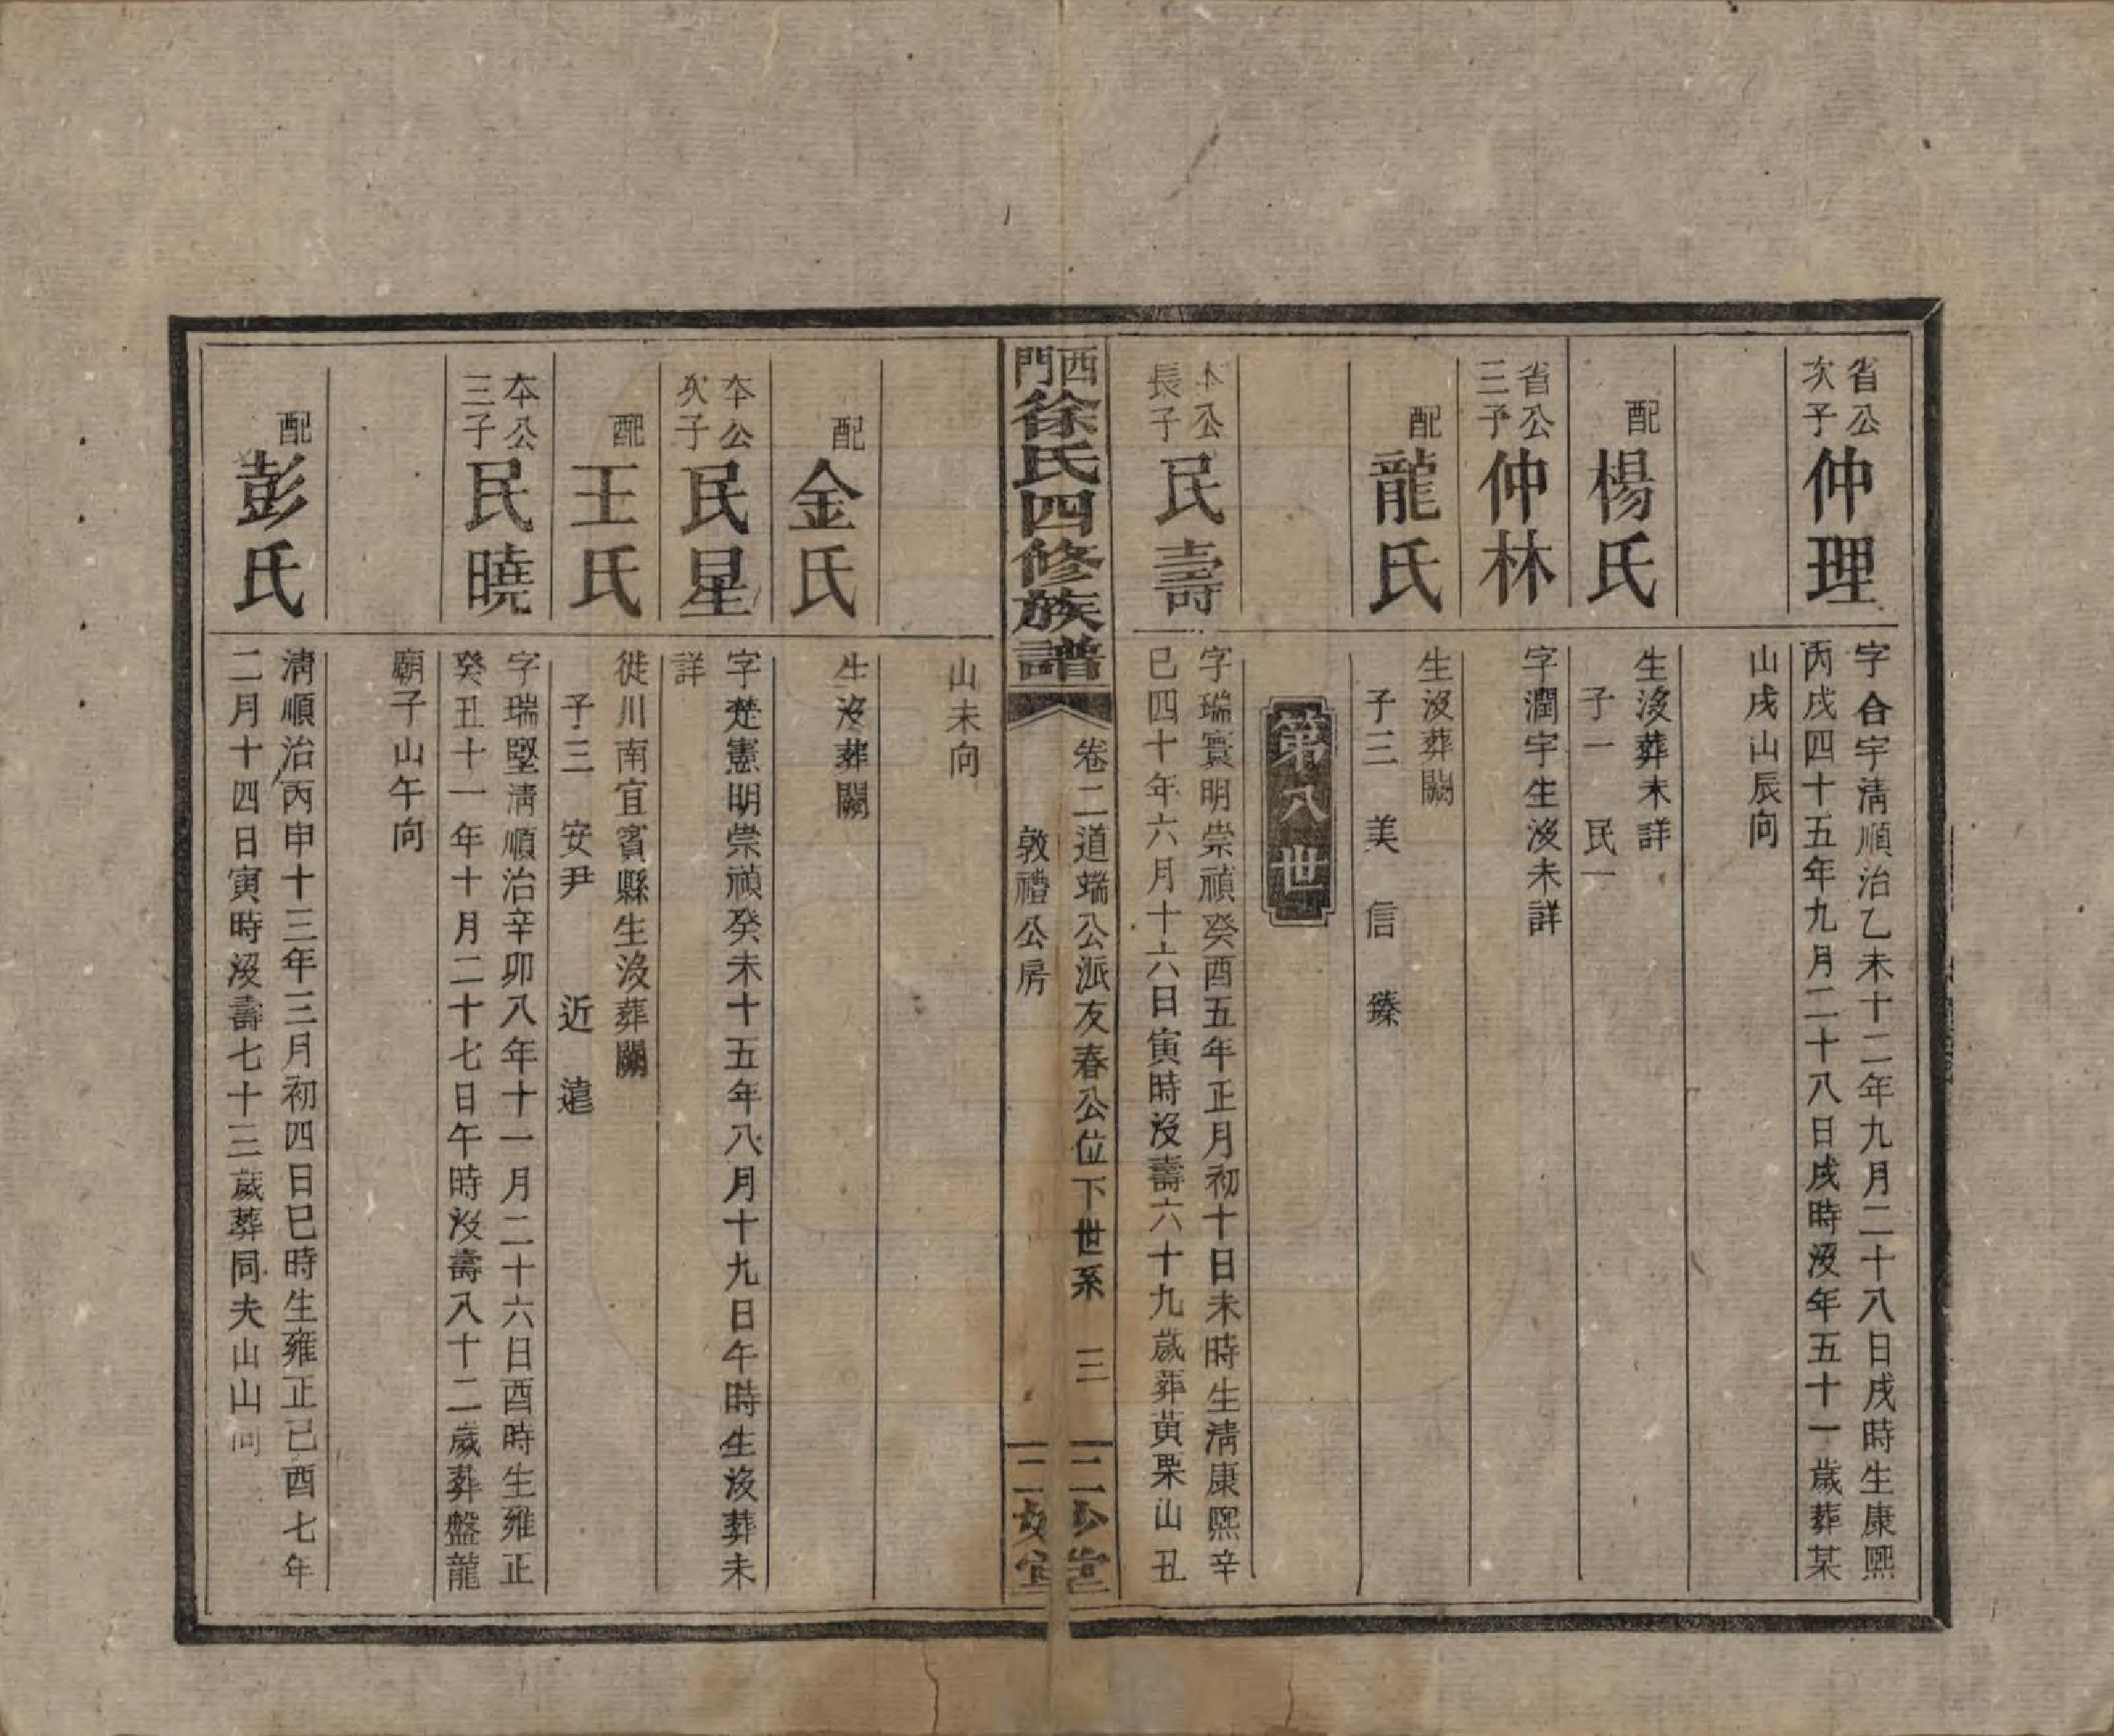 省公
次子
仲理
字合宇清順治乙未十二年九月二十八日戌時生康熙
丙戌四十五年九月二十八日戌時沒年五十一歲葬某
山戌山辰向
配
楊氏
生沒葬未詳
子一 民一
省公
三子
仲林
字潤宇生沒未詳
配
龍氏
生沒葬闕
子三 美 信 臻
第八世
本公
長子
民壽
字瑞寰明崇禎癸酉五年正月初十日未時生清康熙辛
巳四十年六月十六日寅時沒壽六十九歲葬黃栗山丑
西門徐氏四修族譜
卷二道端公派友春公位下世系 三
敦禮公房
山未向
配
金氏
生沒葬闕
本公
次子
民星
字楚憲明崇禎癸未十五年八月十九日午時生沒葬未
詳
配
王氏
徙川南宜賓縣生沒葬闕
子三 安尹 近 遠
本公
三子
民曉
字瑞堅清順治辛卯八年十一月二十六日酉時生雍正
癸丑十一年十月二十七日午時沒壽八十二歲葬盤龍
廟子山午向
配
彭氏
清順治丙申十三年三月初四日巳時生雍正己酉七年
二月十四日寅時沒壽七十三歲葬同夫山山向